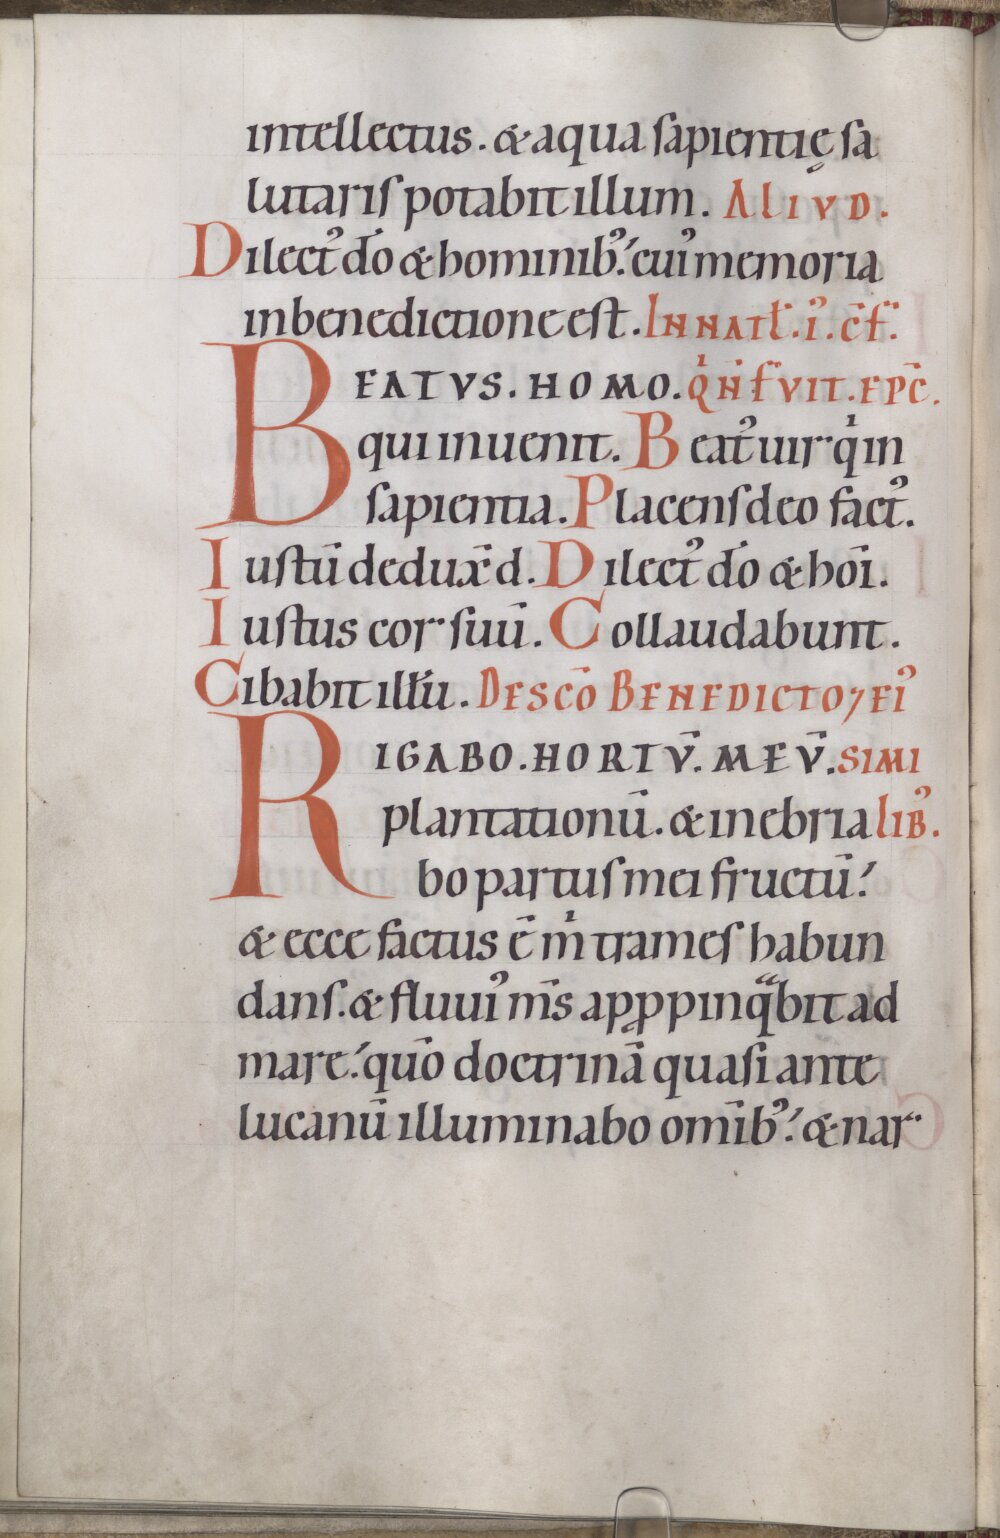 intellectus. & aqua sapientię sa
lutaris potabit illum. ALIVD.
Dilect᾿ dō & hominib᾿. cui᾿ memoria
in benedictione est. IN NATL̄. I᾿. C̄F̄.
BEATVS. HOMO. Q̇ N̄ FVIT. EPC̄.
qui inuenit. Beat᾿ uir q̇ in
sapientia. Placens deo fact᾿.
Iustū dedux̄ d. Dilect᾿ dō & hoī.
Iustus cor suū. Collaudabunt.
Cibabit illū. DE SCŌ BENEDICTO ⁊ EI᾿
RIGABO. HORTV̄. MEV̄. SIMI
plantationū. & inebria LIB᾿.
bo partus mei fructū.
& ecce factus ē m̍ trames habun
dans. & fluui᾿ m̄s apꝓpinq̄bit ad
mare. quō doctrinā quasi ante
lucanū illuminabo omīb᾿. & nar